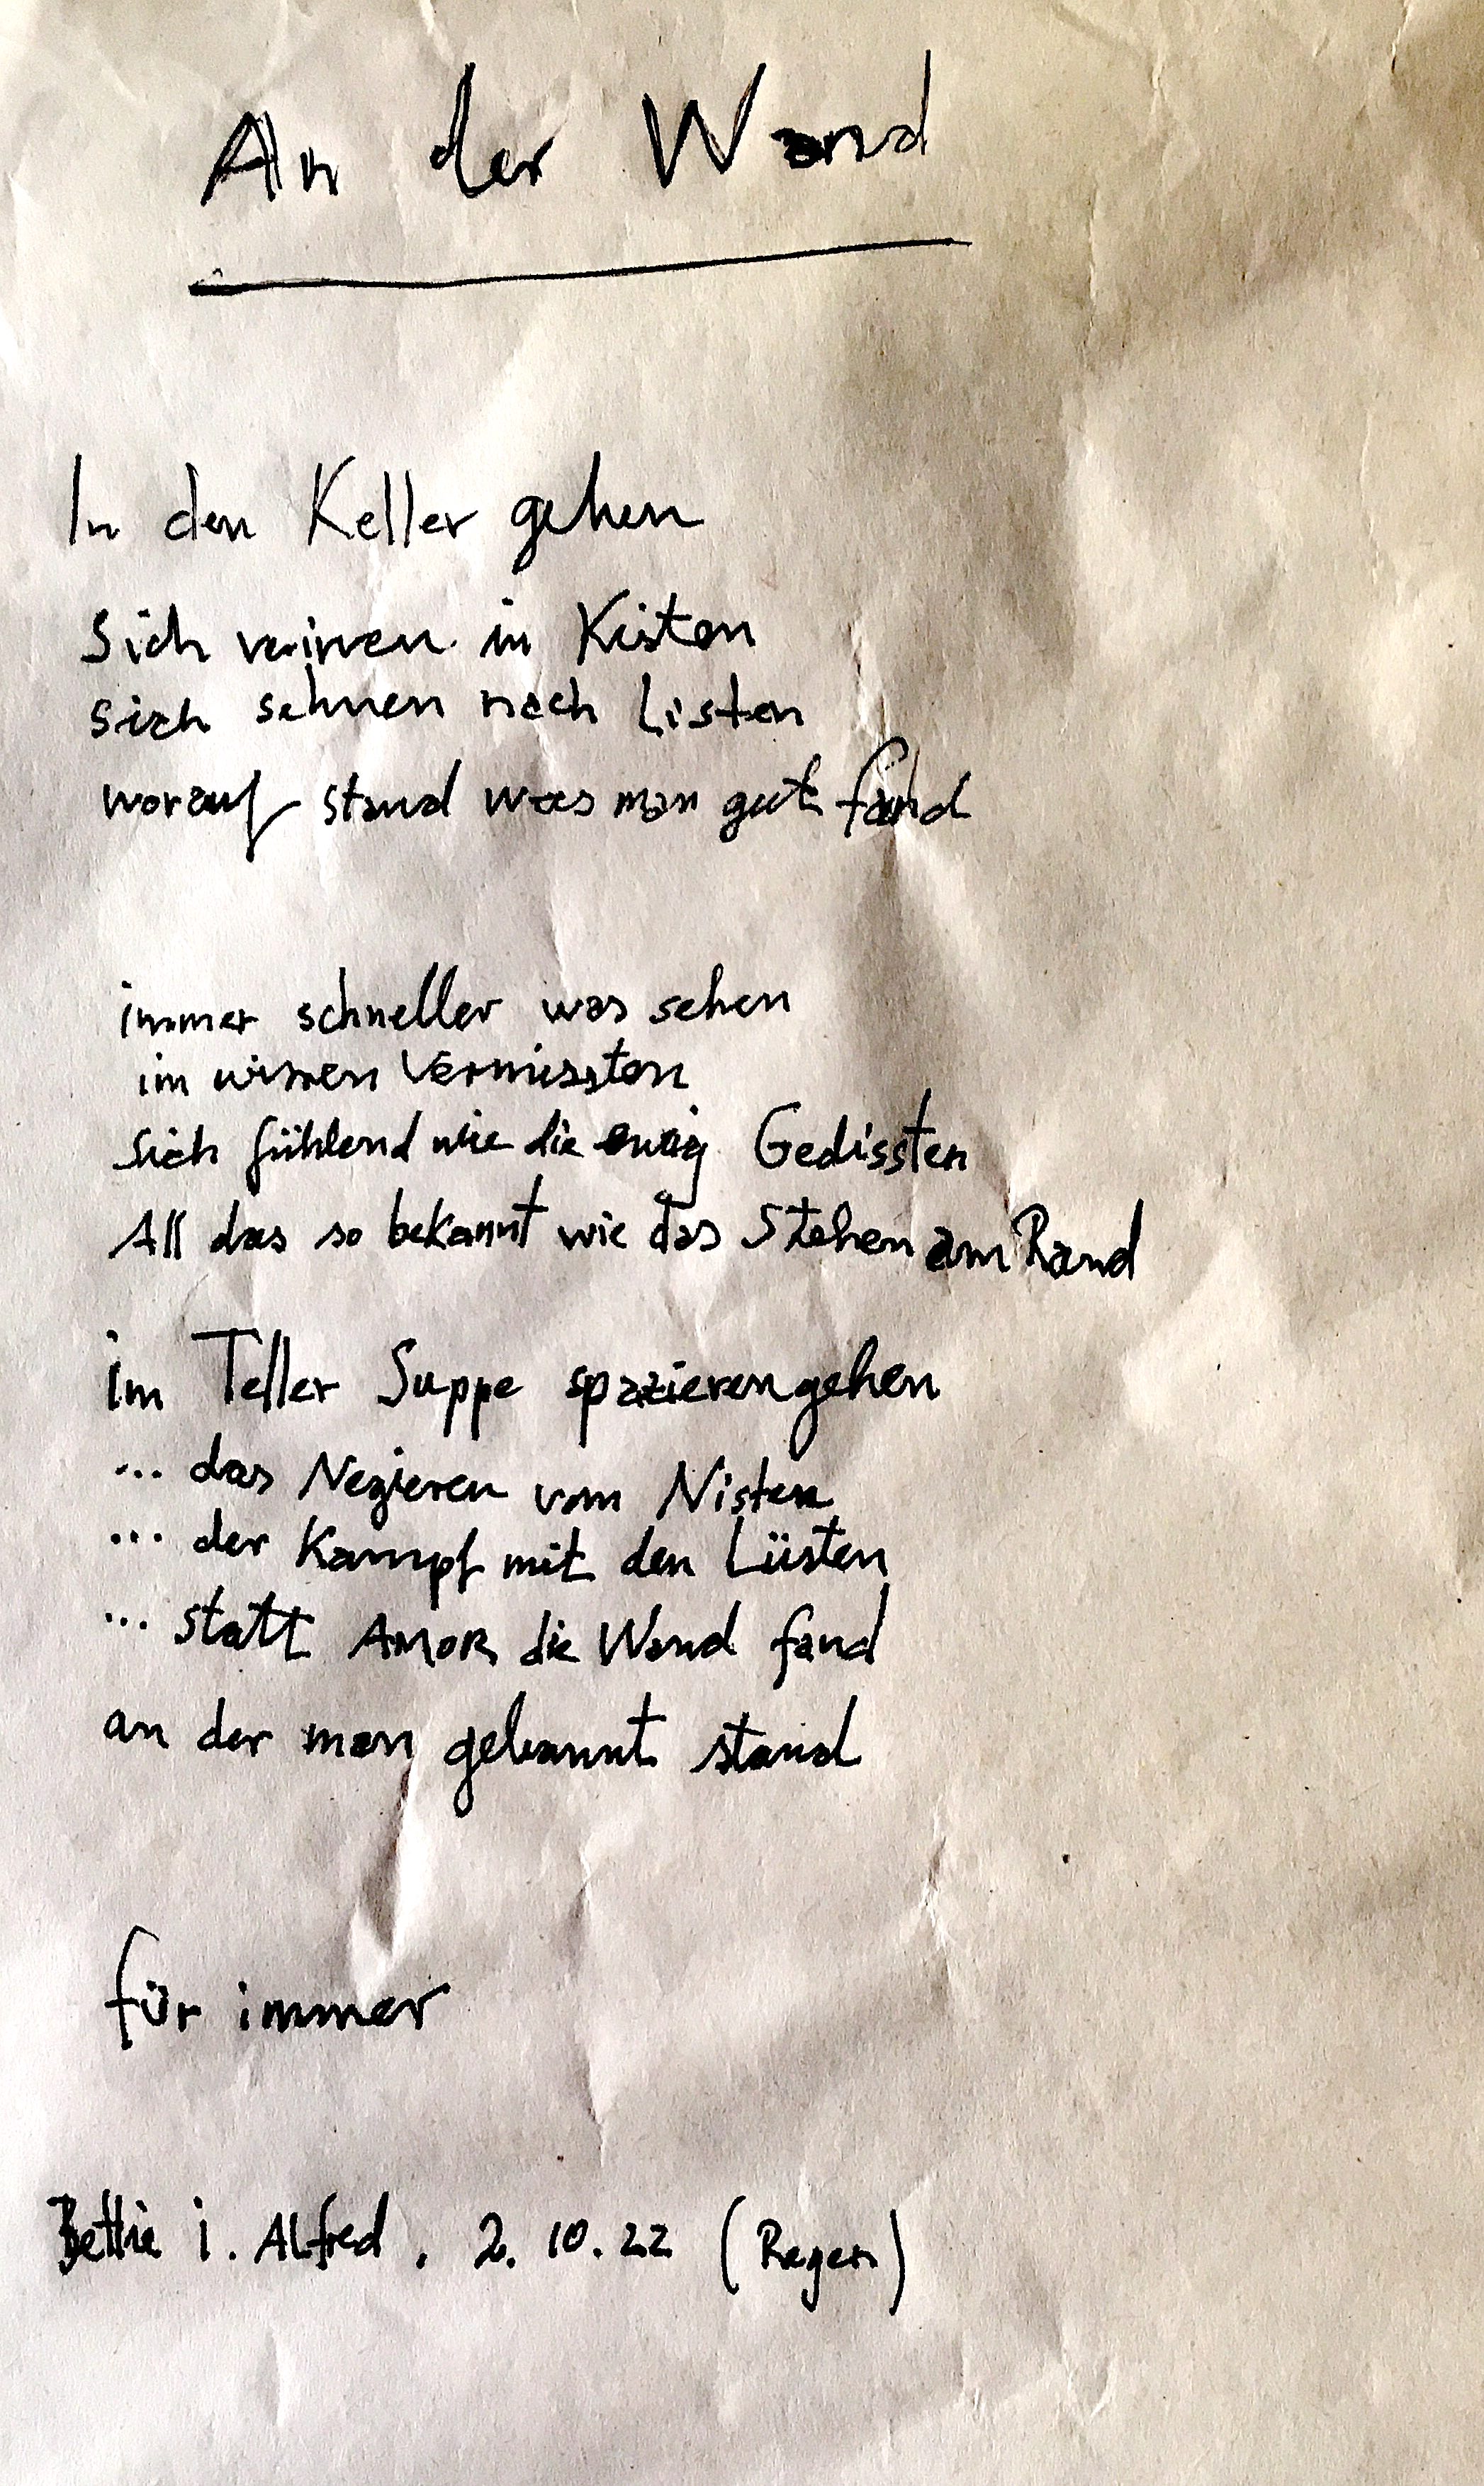 An der Wand
In den Keller gehen
Sich verirren in Kisten
sich sehnen nach Listen
worauf stand was man gut fand
immer schneller was sehen
im wirren Vermissten
Sich fühlend wie die ewig Gedissten
All das so bekannt wie das Stehen am Rand
im Teller Suppe spazierengehen
... das Negieren vom Nisten
... der Kampf mit den Lüsten
... statt AMOR die Wand fand
an der man gebannt stand
für immer
Bettie i. Alfred. 2. 10. 22 (Regen)